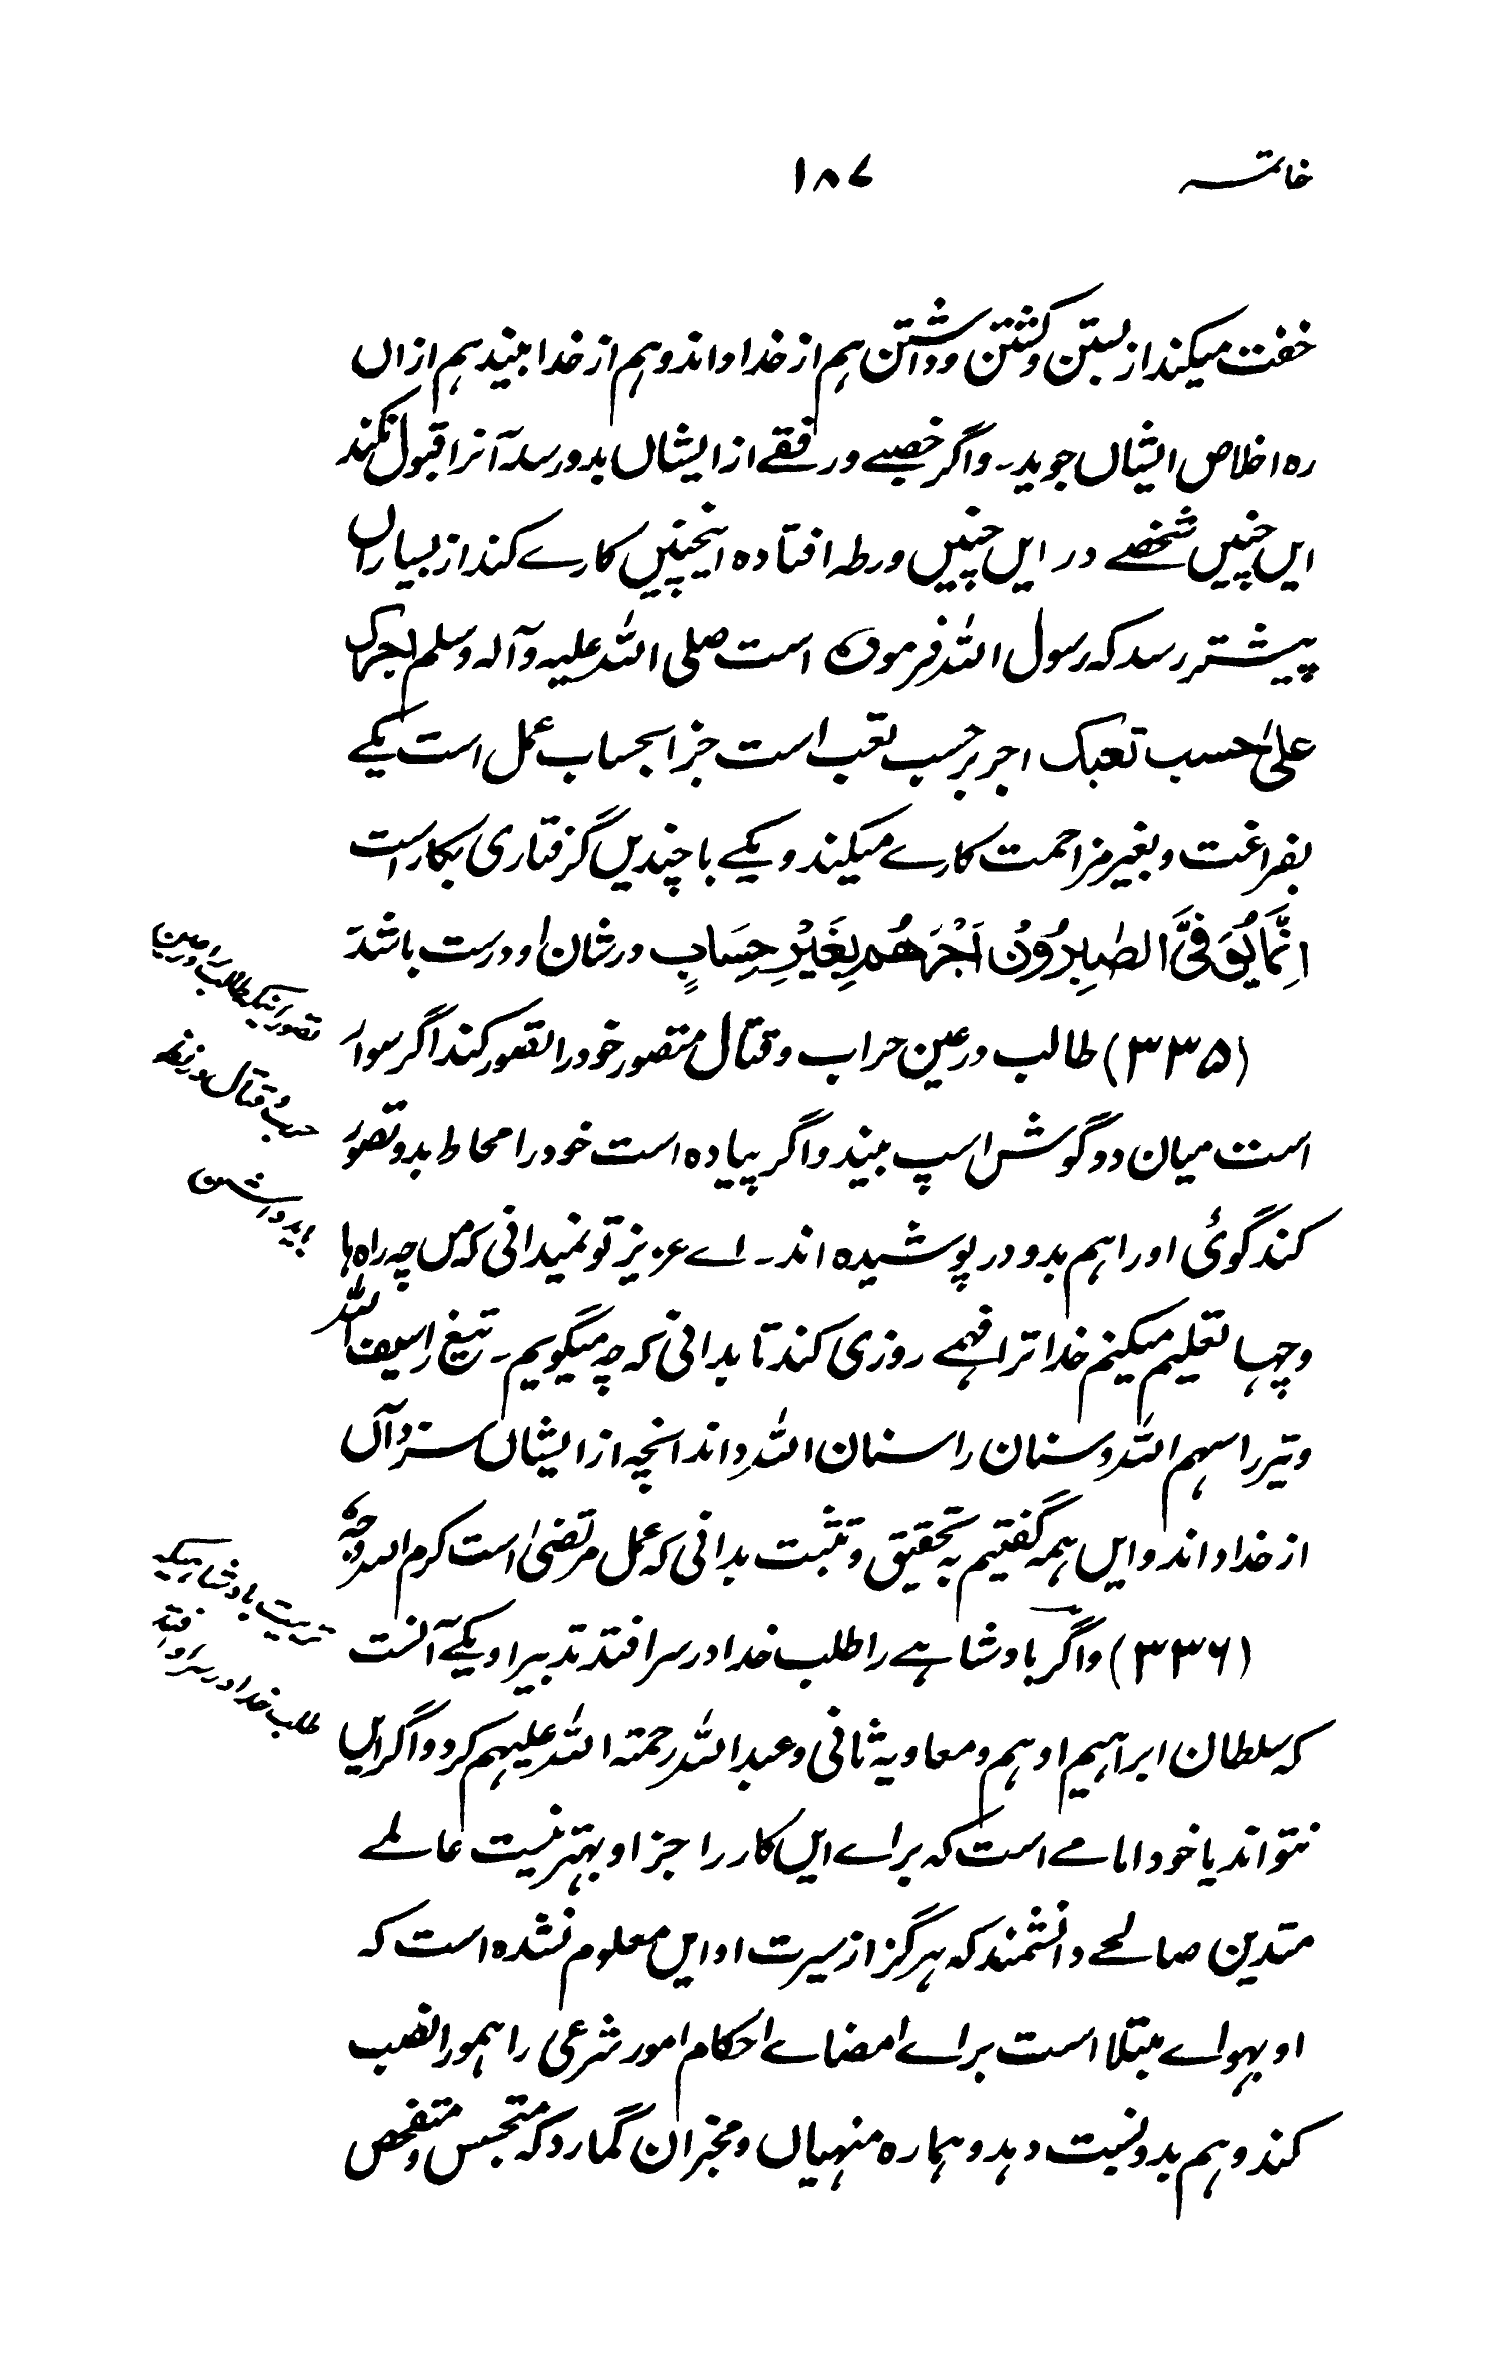 خاتمہ ۱۸۷
خفت میکند از بستن و کشتن و داشتن ہم از خدا داند و ہم از خدا بیند ہم ازاں
رہ اخلاص ایشاں جوید۔ واگر خصبے و رفقے از ایشاں بدو رسد آنرا قبول نکند
ایں چنیں شخصے در ایں چنیں ورطہ افتادہ اینچنیں کارے کند از بسیاراں
پیشتر رسد کہ رسول اللہ فرمودہ است صلی اللہ علیہ وآلہ وسلم اجرک
علیٰ حسب تعبک اجر برحسب تعب است جزا بحساب عمل است یکے
بفراغت و بغیر مزاحمت کارے میکند و یکے با چندیں گرفتاری بکار است
اِنَّمَا یُوَفَّی الصّٰبِرُوْنَ اَجْرَھُمْ بِغَیْرِ حِسَابٍ در شان او درست باشد
(۳۳۵) طالب در عین حراب و قتال متصور خود را تصور کند اگر سوار
است میان دو گوش اسپ بیند واگر پیادہ است خود را محاط بدو تصور
کند گوئی او را ہم بدو در پوشیدہ اند۔ اے عزیز تو نمیدانی کہ من چہ راہ ہا
وچہا تعلیم میکنم خدا ترا فہمے روزی کند تا بدانی کہ چہ میگویم۔ تیغ را سیف اللہ
و تیر را سہم اللہ و سنان را سنان اللہ داند انچہ از ایشاں سزد آں
از خدا داند و ایں ہمہ گفتیم بہ تحقیق و تثبت بدانی کہ عمل مرتضیٰ است کرم اللہ وجہہ
(۳۳۶) واگر بادشاہے را طلب خدا در سر افتد تدبیر او یکے آنست
کہ سلطان ابراہیم ادہم و معاویہ ثانی و عبداللہ رحمتہ اللہ علیہم کرد واگر ایں
نتواند یا خود امامے است کہ براے ایں کار را جز او بہتر نیست عالمے
متدین صالحے دانشمند کہ ہرگز از سیرت او ایں معلوم نشدہ است کہ
او بہواے مبتلا است براے امضاے احکام امور شرعی را ہمورا نصب
کند و ہم بدو نسبت دہد و ہمارہ منہیاں و مخبران گمارد کہ متجسس و متفحص
تصور اینکہ طالب را در عین
حرب و قتال در نظر
باید داشتن
تربیت بادشاہیکہ
طلب خدا در سر او افتد